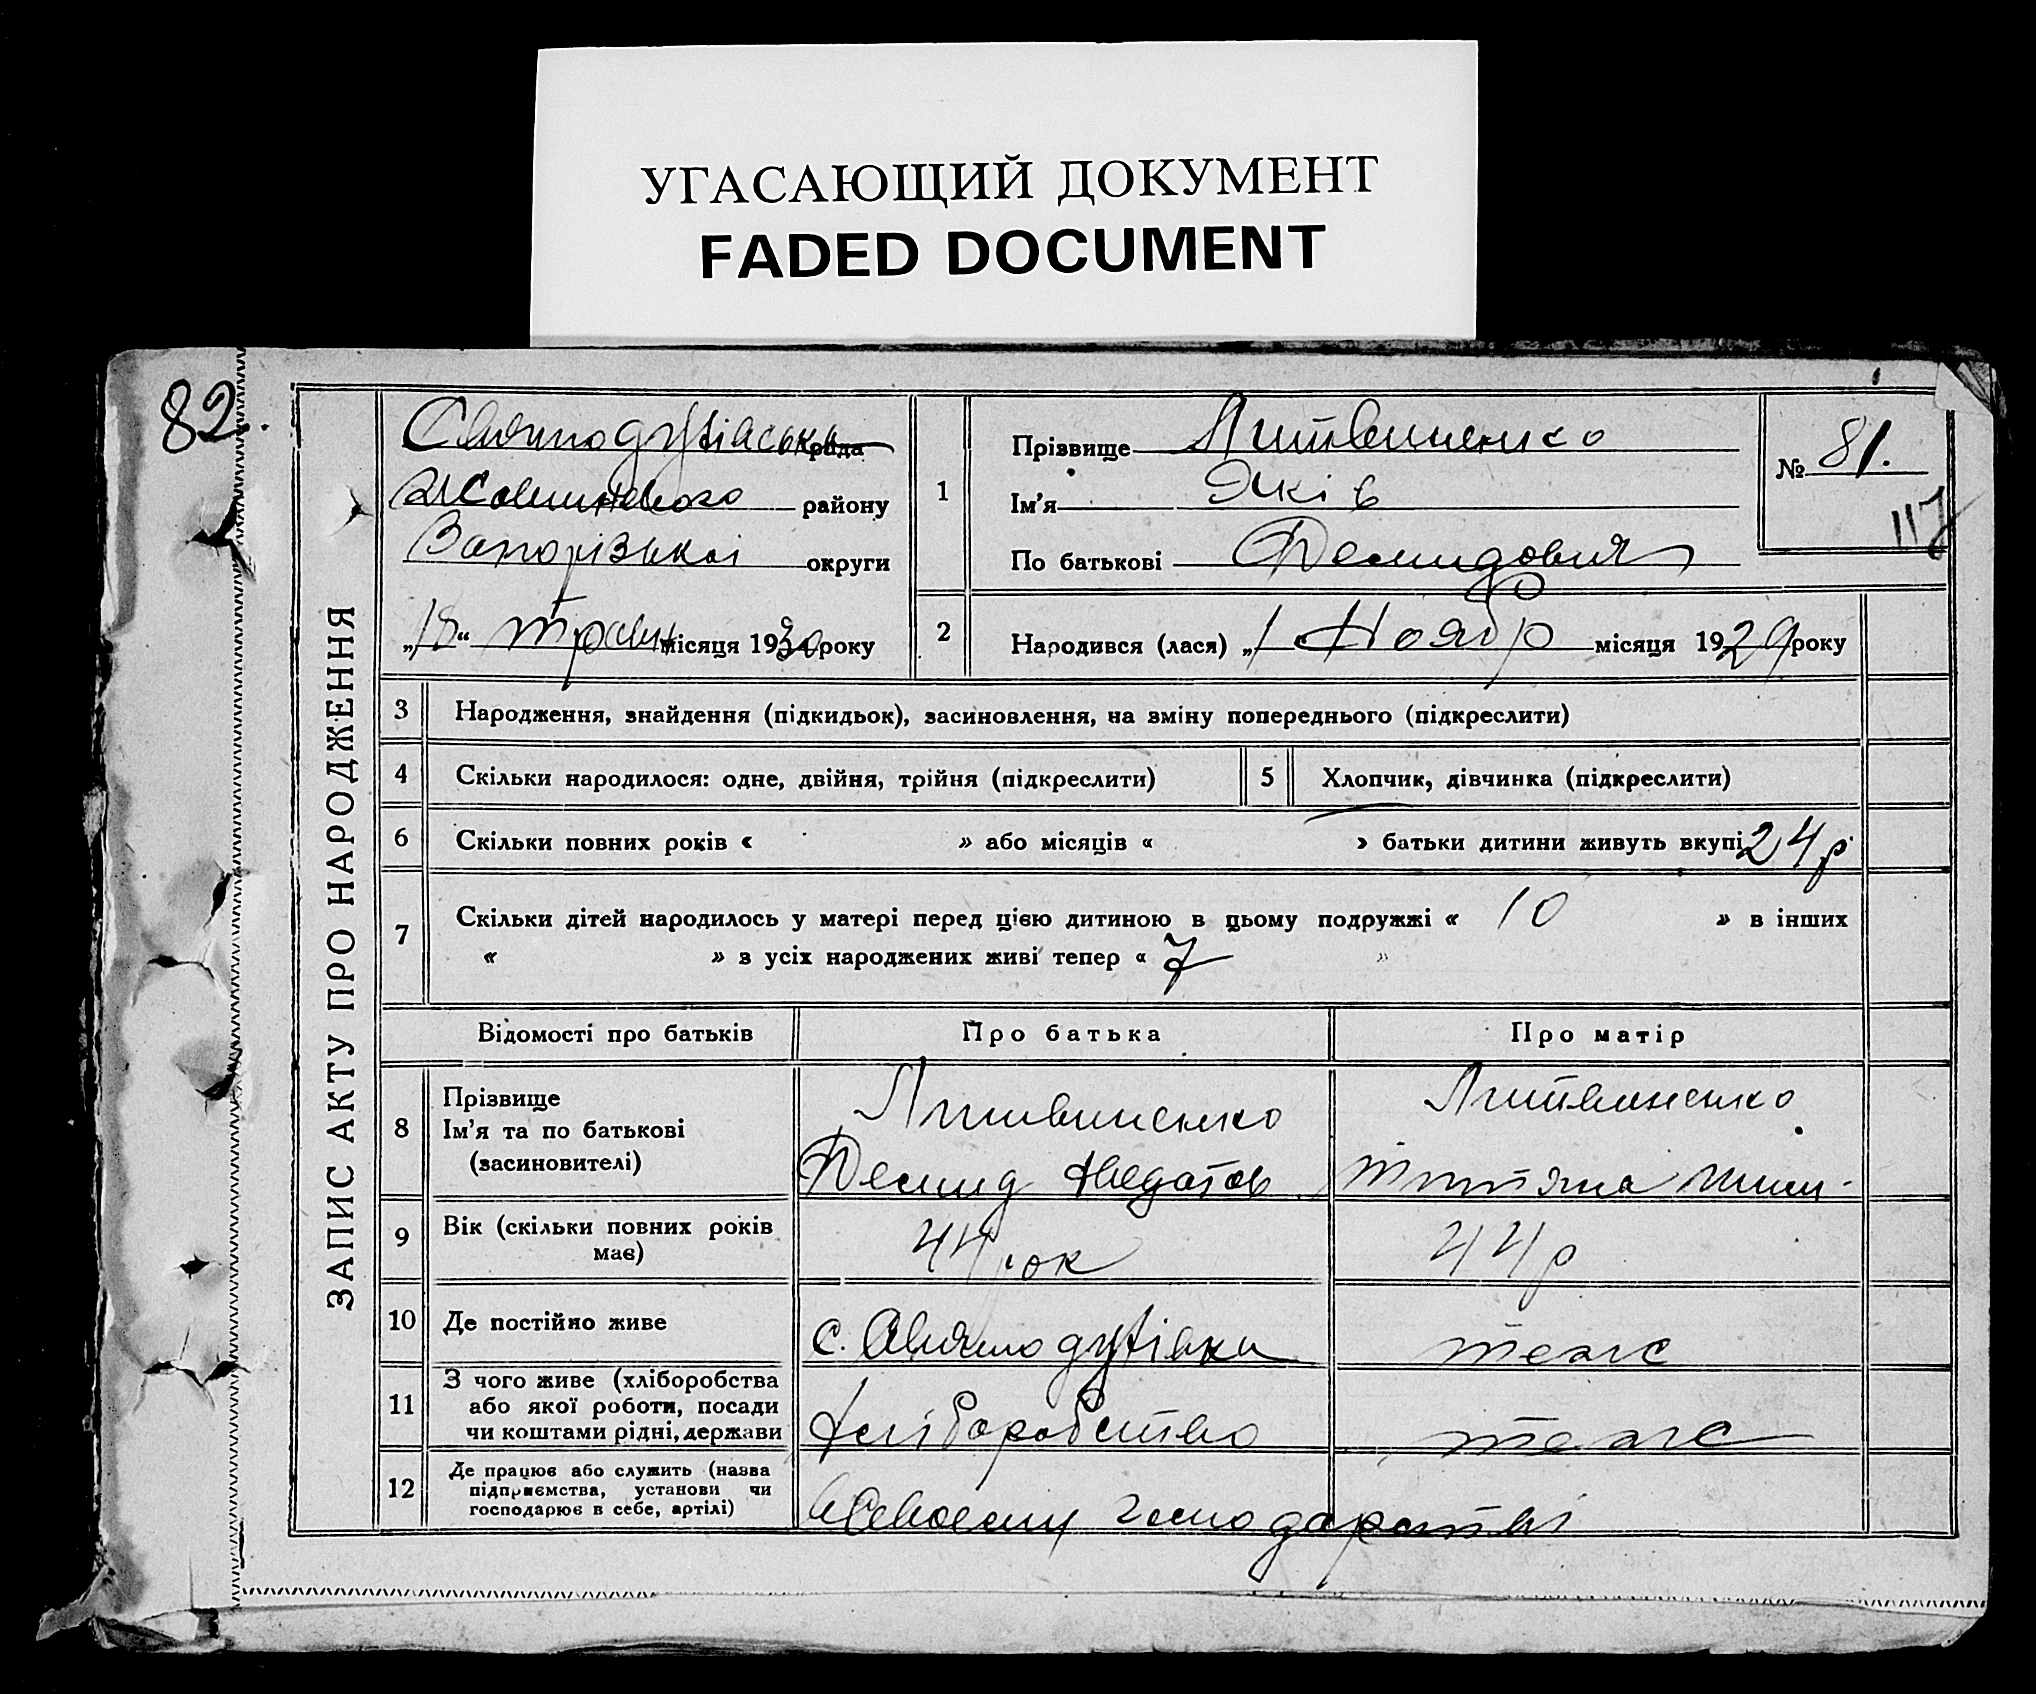 УГАСАЮЩИЙ ДОКУМЕНТ
FADED DOCUMENT
82.
ЗАПИС АКТУ ПРО НАРОДЖЕННЯ
рада
району
Запорізької округи
„18“ травн місяця 1930 року
1
Прізвище Литвиненко
Ім’я Яків
По батькові Демидович
№ 81.
117
2
Народився (лася) „1 Ноябр місяця 1929 року
3 Народження, знайдення (підкидьок), засиновлення, на зміну попереднього (підкреслити)
4 Скільки народилося: одне, двійня, трійня (підкреслити)
5 Хлопчик, дівчинка (підкреслити)
6 Скільки повних років « » або місяців « » батьки дитини живуть вкупі 24 р
7 Скільки дітей народилось у матері перед цією дитиною в цьому подружжі « 10 » в інших
« » з усіх народжених живі тепер « 7 »
Відомості про батьків
Про батька
Про матір
8 Прізвище
Ім’я та по батькові
(засиновителі)
Литвиненко
Демид
Литвиненко
9 Вік (скільки повних років
має)
44 рок
44 р
10 Де постійно живе
с.
теж
11 З чого живе (хліборобства
або якої роботи, посади
чи коштами рідні, держави
Хліборобство
теж
12 Де працює або служить (назва
підприємства, установи чи
господарює в себе, артілі)
в Своєму господарстві